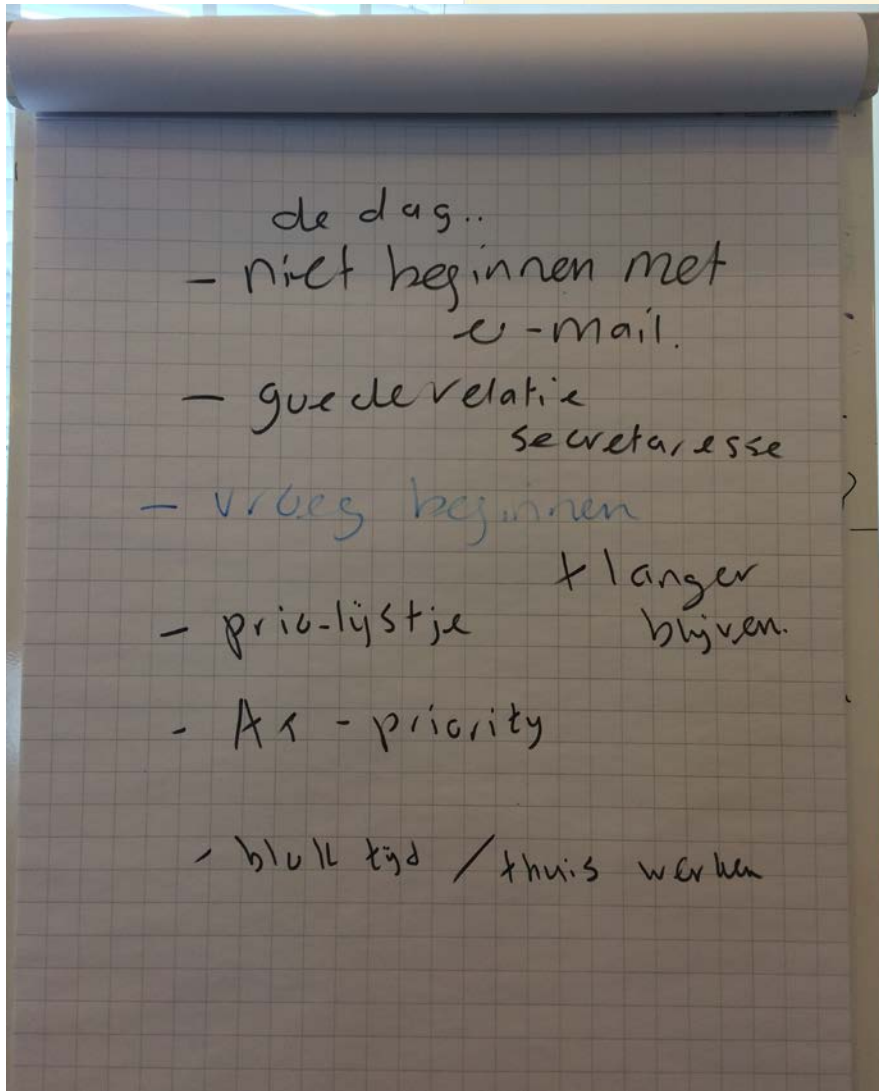 de dag..
- niet beginnen met
e-mail.
- goede relatie
secretaresse
- vroeg beginnen
+ langer
blijven.
- prio-lijstje
- A1 - priority
- blok tijd / thuis werken
?